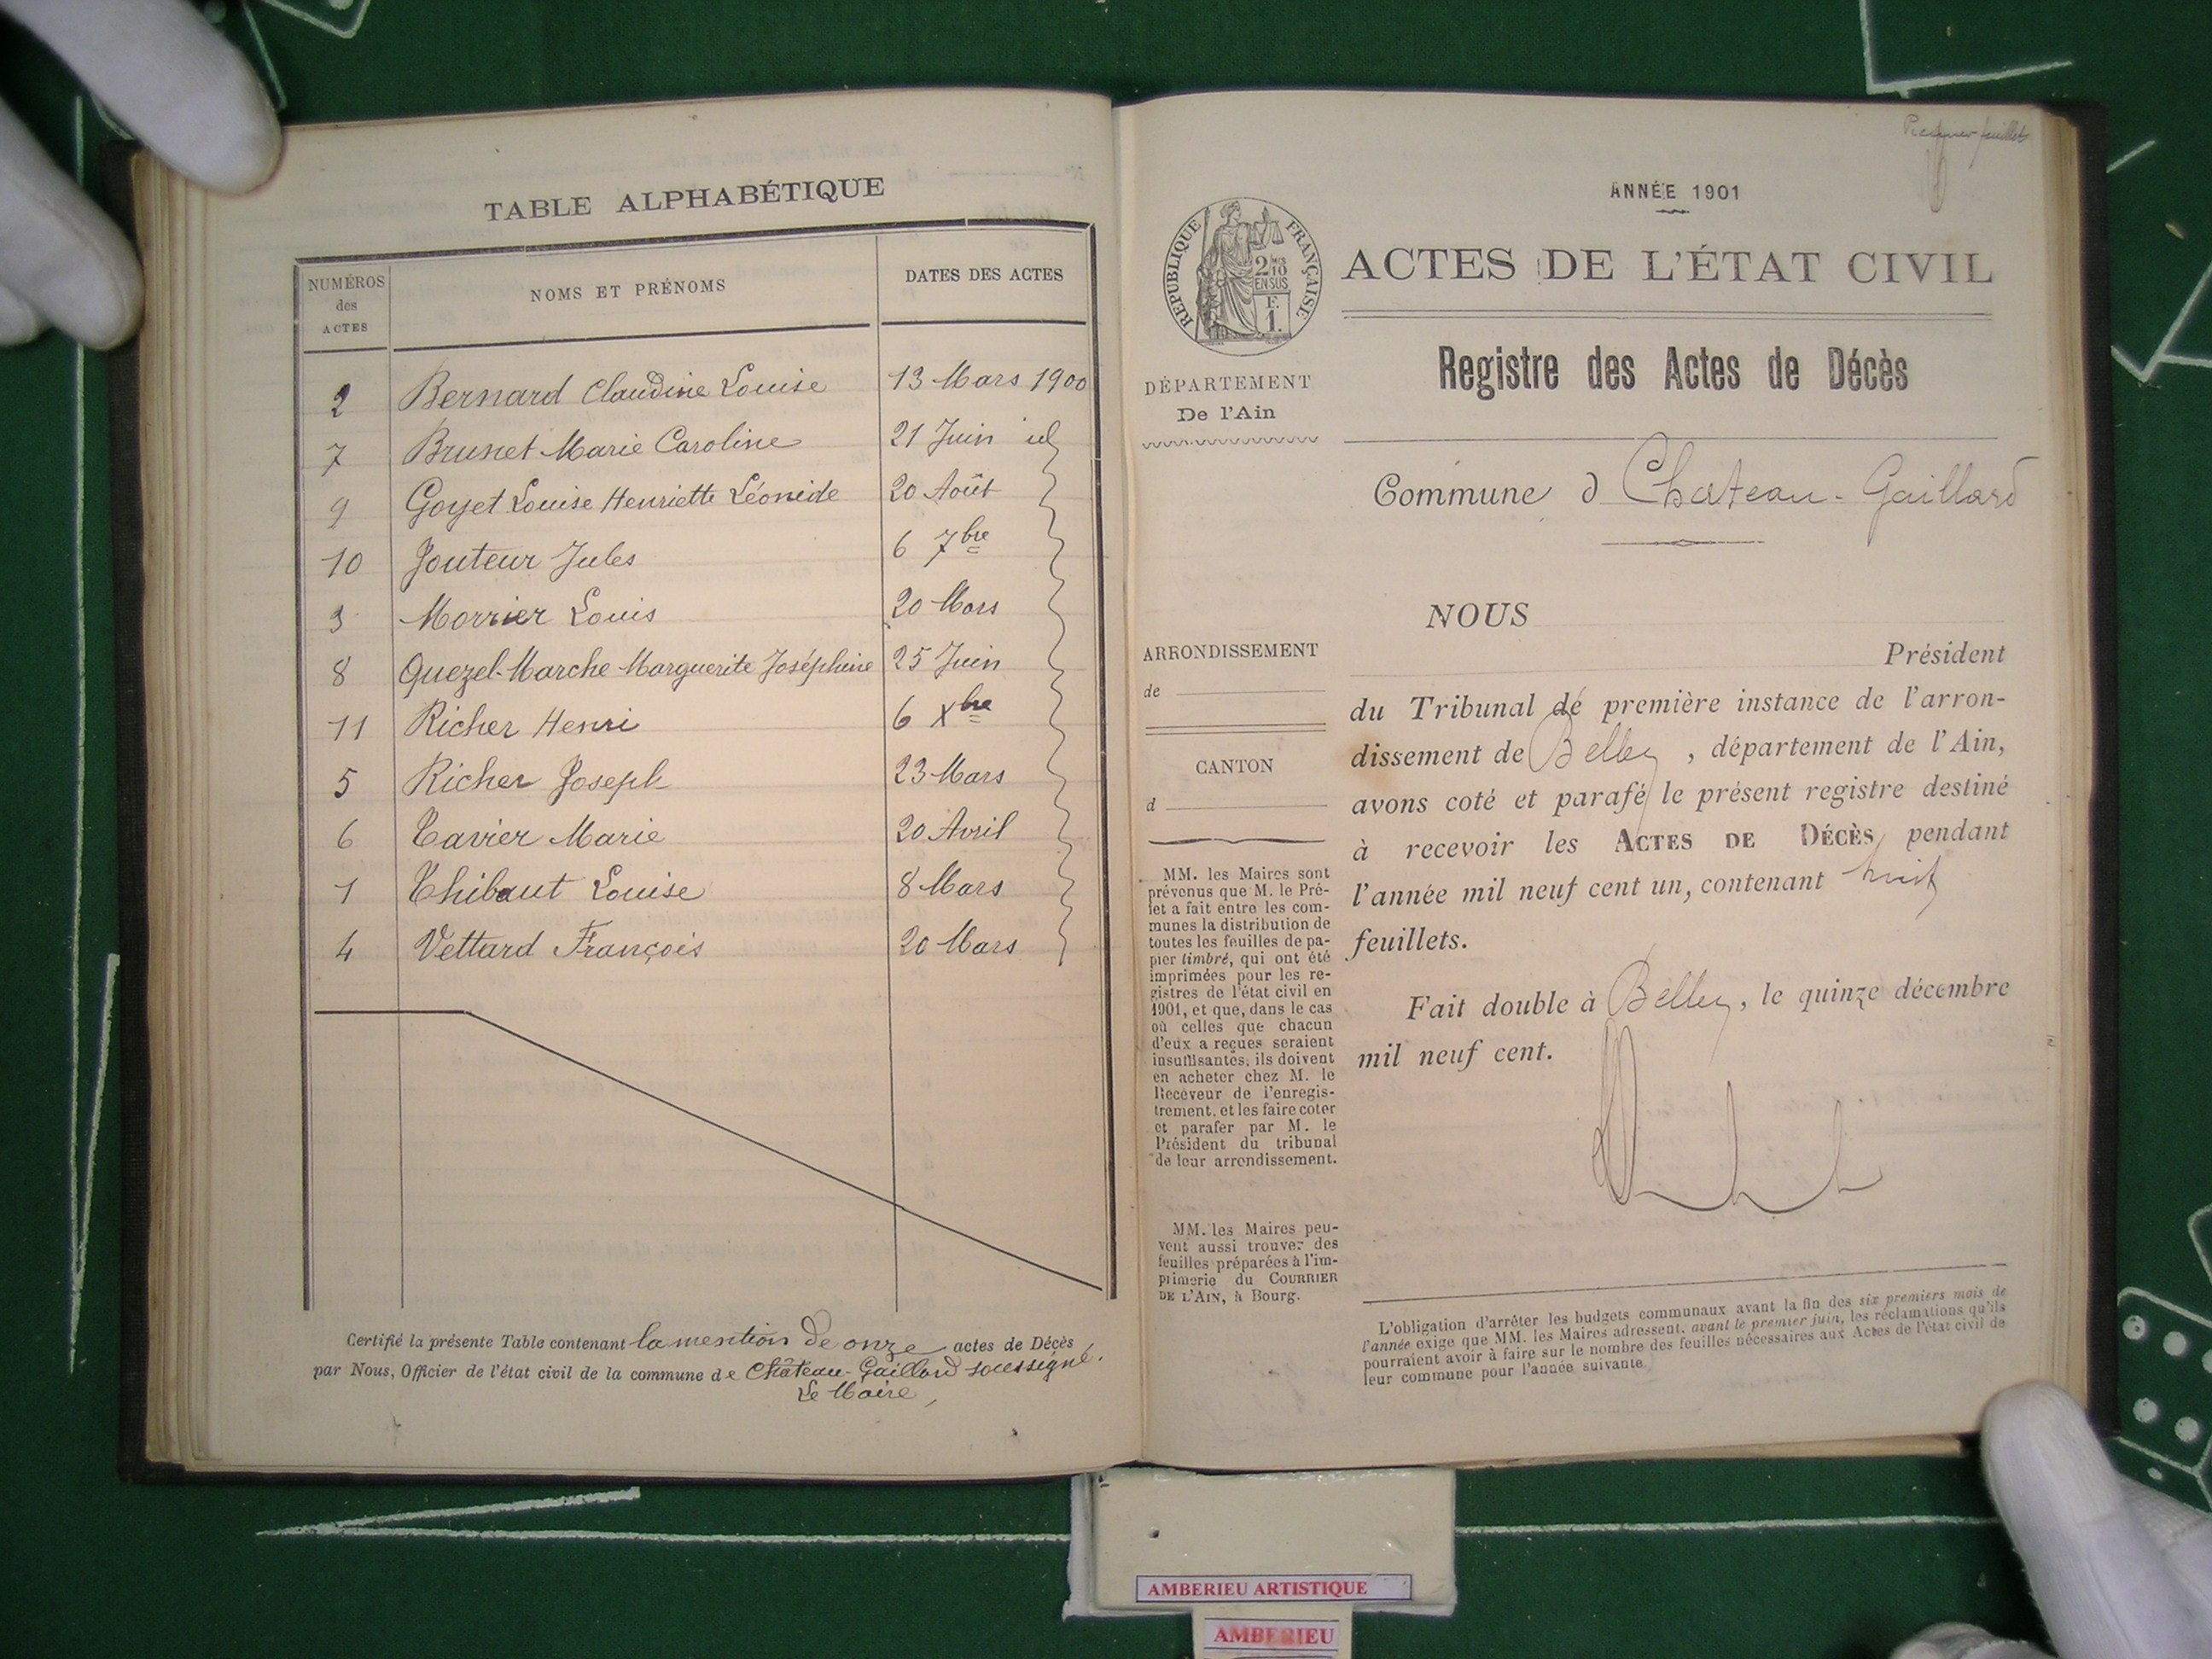 TABLE ALPHABÉTIQUE
NUMÉROS des ACTES NOMS ET PRÉNOMS DATES DES ACTES
2 Bernard Claudine Louise 13 Mars 1900
7 Brunet Marie Caroline 21 Juin id
9 Goyet Louise Henriette Léonide 20 Août
10 Jouteur Jules 6 7bre
3 Morrier Louis 20 Mars
8 Quezel-Marche Marguerite Joséphine 25 Juin
11 Richer Henri 6 Xbre
5 Richer Joseph 23 Mars
6 Tavier Marie 20 Avril
1 Thibaut Louise 8 Mars
4 Vettard François 20 Mars
Certifié la présente Table contenant la mention de onze actes de Décès
par Nous, Officier de l'état civil de la commune de Château-Gaillard soussigné.
Le Maire,
Premier feuillet
ANNÉE 1901
RÉPUBLIQUE FRANÇAISE
2/10
EN SUS
F.
1.
ACTES DE L'ÉTAT CIVIL
Registre des Actes de Décès
DÉPARTEMENT
De l'Ain
Commune d Chateau-Gaillard
NOUS
Président
du Tribunal de première instance de l'arron-
dissement de Belley, département de l'Ain,
avons coté et parafé le présent registre destiné
à recevoir les ACTES DE DÉCÈS pendant
l'année mil neuf cent un, contenant huit
feuillets.
Fait double à Belley, le quinze décembre
mil neuf cent.
ARRONDISSEMENT
de
CANTON
d
MM. les Maires sont
prévenus que M. le Pré-
fet a fait entre les com-
munes la distribution de
toutes les feuilles de pa-
pier timbré, qui ont été
imprimées pour les re-
gistres de l'état civil en
1901, et que, dans le cas
où celles que chacun
d'eux a reçues seraient
insuffisantes, ils doivent
en acheter chez M. le
Receveur de l'enregis-
trement, et les faire coter
et parafer par M. le
Président du tribunal
de leur arrondissement.
MM. les Maires peu-
vent aussi trouver des
feuilles préparées à l'im-
primerie du COURRIER
DE L'AIN, à Bourg.
L'obligation d'arrêter les budgets communaux avant la fin des six premiers mois de
l'année exige que MM. les Maires adressent, avant le premier juin, les réclamations qu'ils
pourraient avoir à faire sur le nombre des feuilles nécessaires aux Actes de l'état civil de
leur commune pour l'année suivante.
AMBERIEU ARTISTIQUE
AMBERIEU